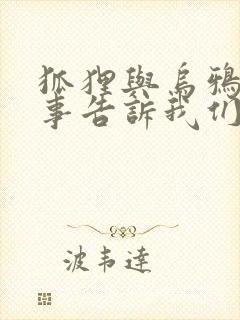 狐狸與烏鴉
事告訴我们
波韦達